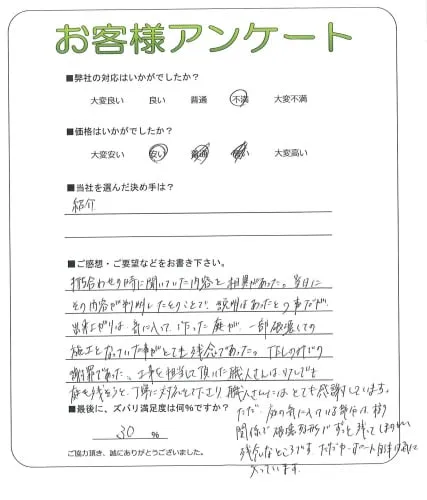 お客様アンケート
■弊社の対応はいかがでしたか？
大変良い 良い 普通 不満 大変不満
■価格はいかがでしたか？
大変安い 安い 普通 高い 大変高い
■当社を選んだ決め手は？
紹介
■ご感想・ご要望などをお書き下さい。
打ち合わせの時に聞いていた内容と相異があった。当日に
その内容が判明したとのことで、説明はあったとの事だが、
出来上がりは、気に入って作った庭が、一部破壊しての
施工となっていた事がとても残念であった。TELのみでの
謝罪であった。工事を担当して頂いた職人さんは、少しでも
庭を残そうと、丁寧に対応して下さり職人さんにはとても感謝しています。
ただ、庭の気に入っている部分は、
関係で破壊された形がずっと残ってしまうのが
残念なところです。ただカーポート自体は気に
入っています。
■最後に、ズバリ満足度は何％ですか？
30 %
ご協力頂き、誠にありがとうございました。